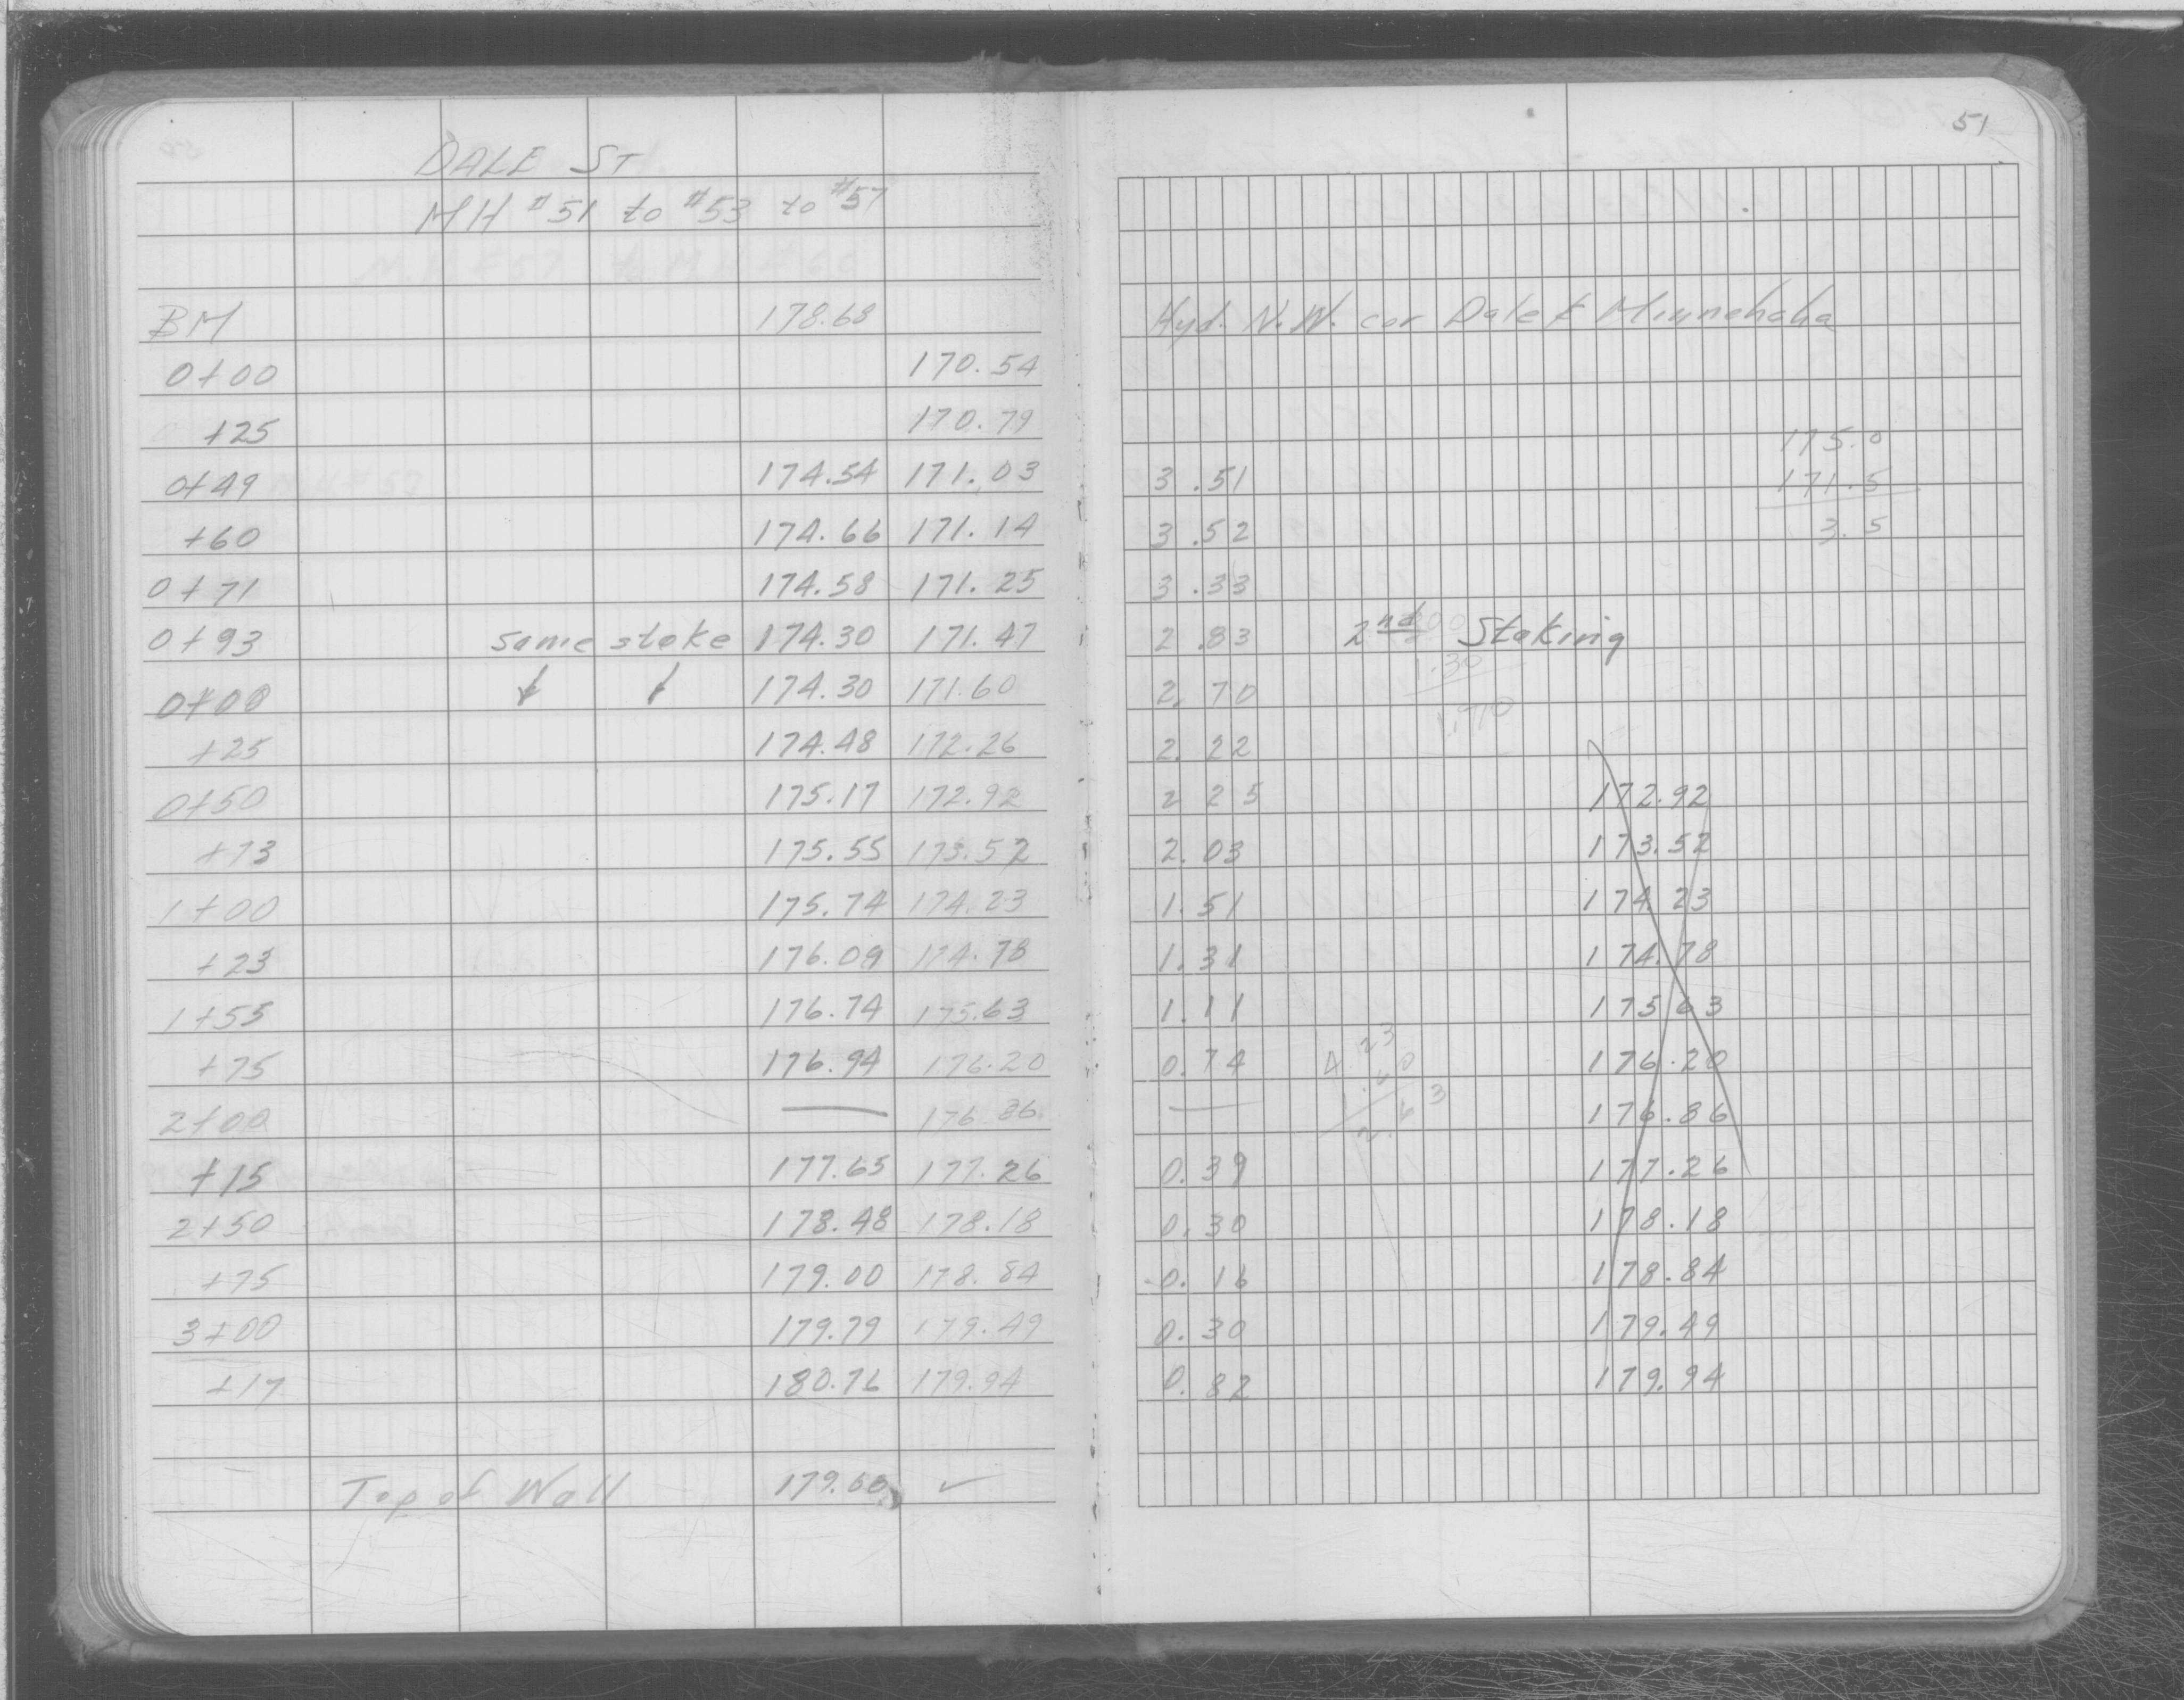 51
DALE ST
MH #51 to #53 to #57
BM 178.68 Hyd. N.W. cor Dale & Minnehaha
0+00 170.54
+25 170.79 175.0
0+49 174.54 171.03 3.51 171.5
+60 174.66 171.14 3.52 3.5
0+71 174.58 171.25 3.33
0+93 same stake 174.30 171.47 2.83 2nd Staking
0+00 ↓ ↓ 174.30 171.60 2.70
+25 174.48 172.26 2.22
0+50 175.17 172.92 2 25 172.92
+73 175.55 173.52 2.03 173.52
1+00 175.74 174.23 1.51 174.23
+23 176.09 174.78 1.31 174.78
1+55 176.74 175.63 1.11 175 63
+75 176.94 176.20 0.74 176.20
2+00 — 176.86 — 176.86
+15 177.65 177.26 0.39 177.26
2+50 178.48 178.18 0.30 178.18
+75 179.00 178.84 0.16 178.84
3+00 179.79 179.49 0.30 179.49
+17 180.76 179.94 0.82 179.94
Top of Wall 179.60 ✓